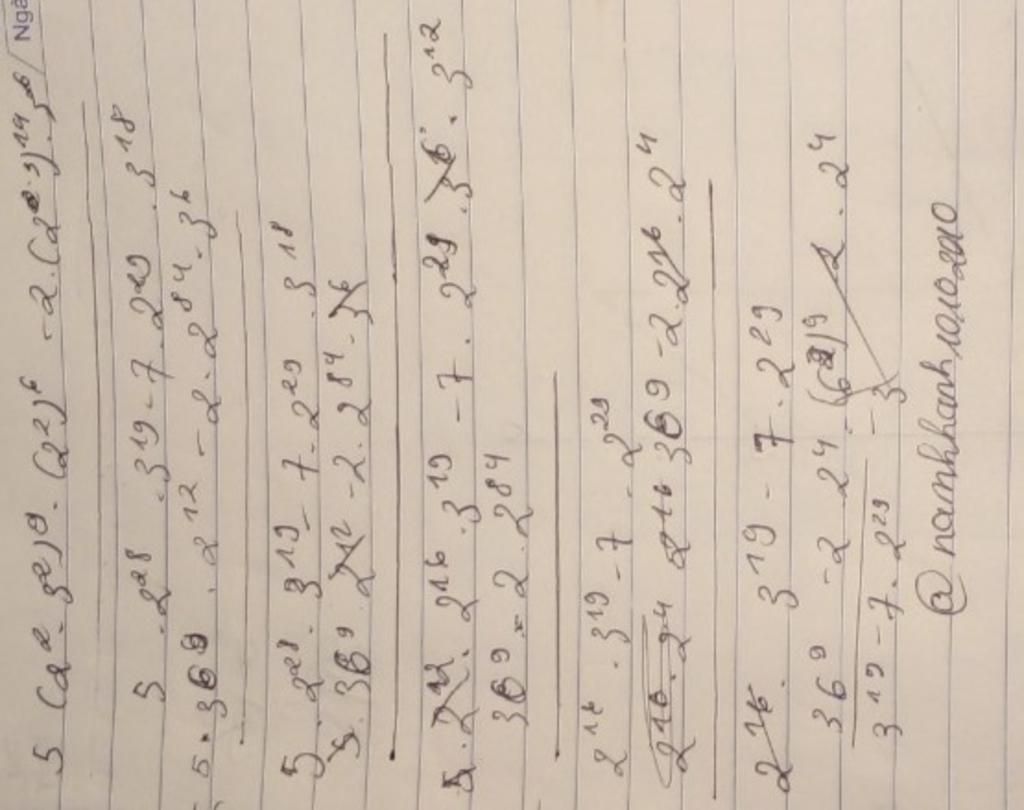 Ngà
5 (2² · 3²)⁹ · (2²)⁶ - 2 · (2² · 3)¹⁴ · 3⁶
5 · 2²⁸ · 3¹⁹ - 7 · 2²⁹ · 3¹⁸
5 · 36⁹ · 2¹² - 2 · 2⁸⁴ · 3⁶
5 · 2²⁸ · 3¹⁹ - 7 · 2²⁹ · 3¹⁸
5 · 36⁹ · 2¹² - 2 · 2⁸⁴ · 3⁶
5 · 2¹² · 2¹⁶ · 3¹⁹ - 7 · 2²⁹ · 3⁶ · 3¹²
36⁹ - 2 · 2⁸⁴
2¹⁶ · 3¹⁹ - 7 · 2²⁹
2¹⁶ · 2⁴ 2¹⁶ 36⁹ - 2 · 2¹⁶ · 2⁴
2¹⁶ · 3¹⁹ - 7 · 2²⁹
36⁹ - 2 · 2⁴ · (6²)⁹ 2 · 2⁴
3¹⁹ - 7 · 2²⁹ - 3
@namkhanh10102010